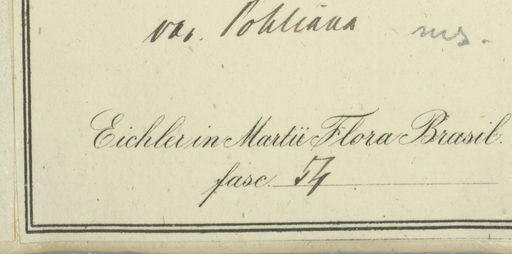 var. Pohliana ms.
Eichler in Martii Flora Brasil.
fasc. 54